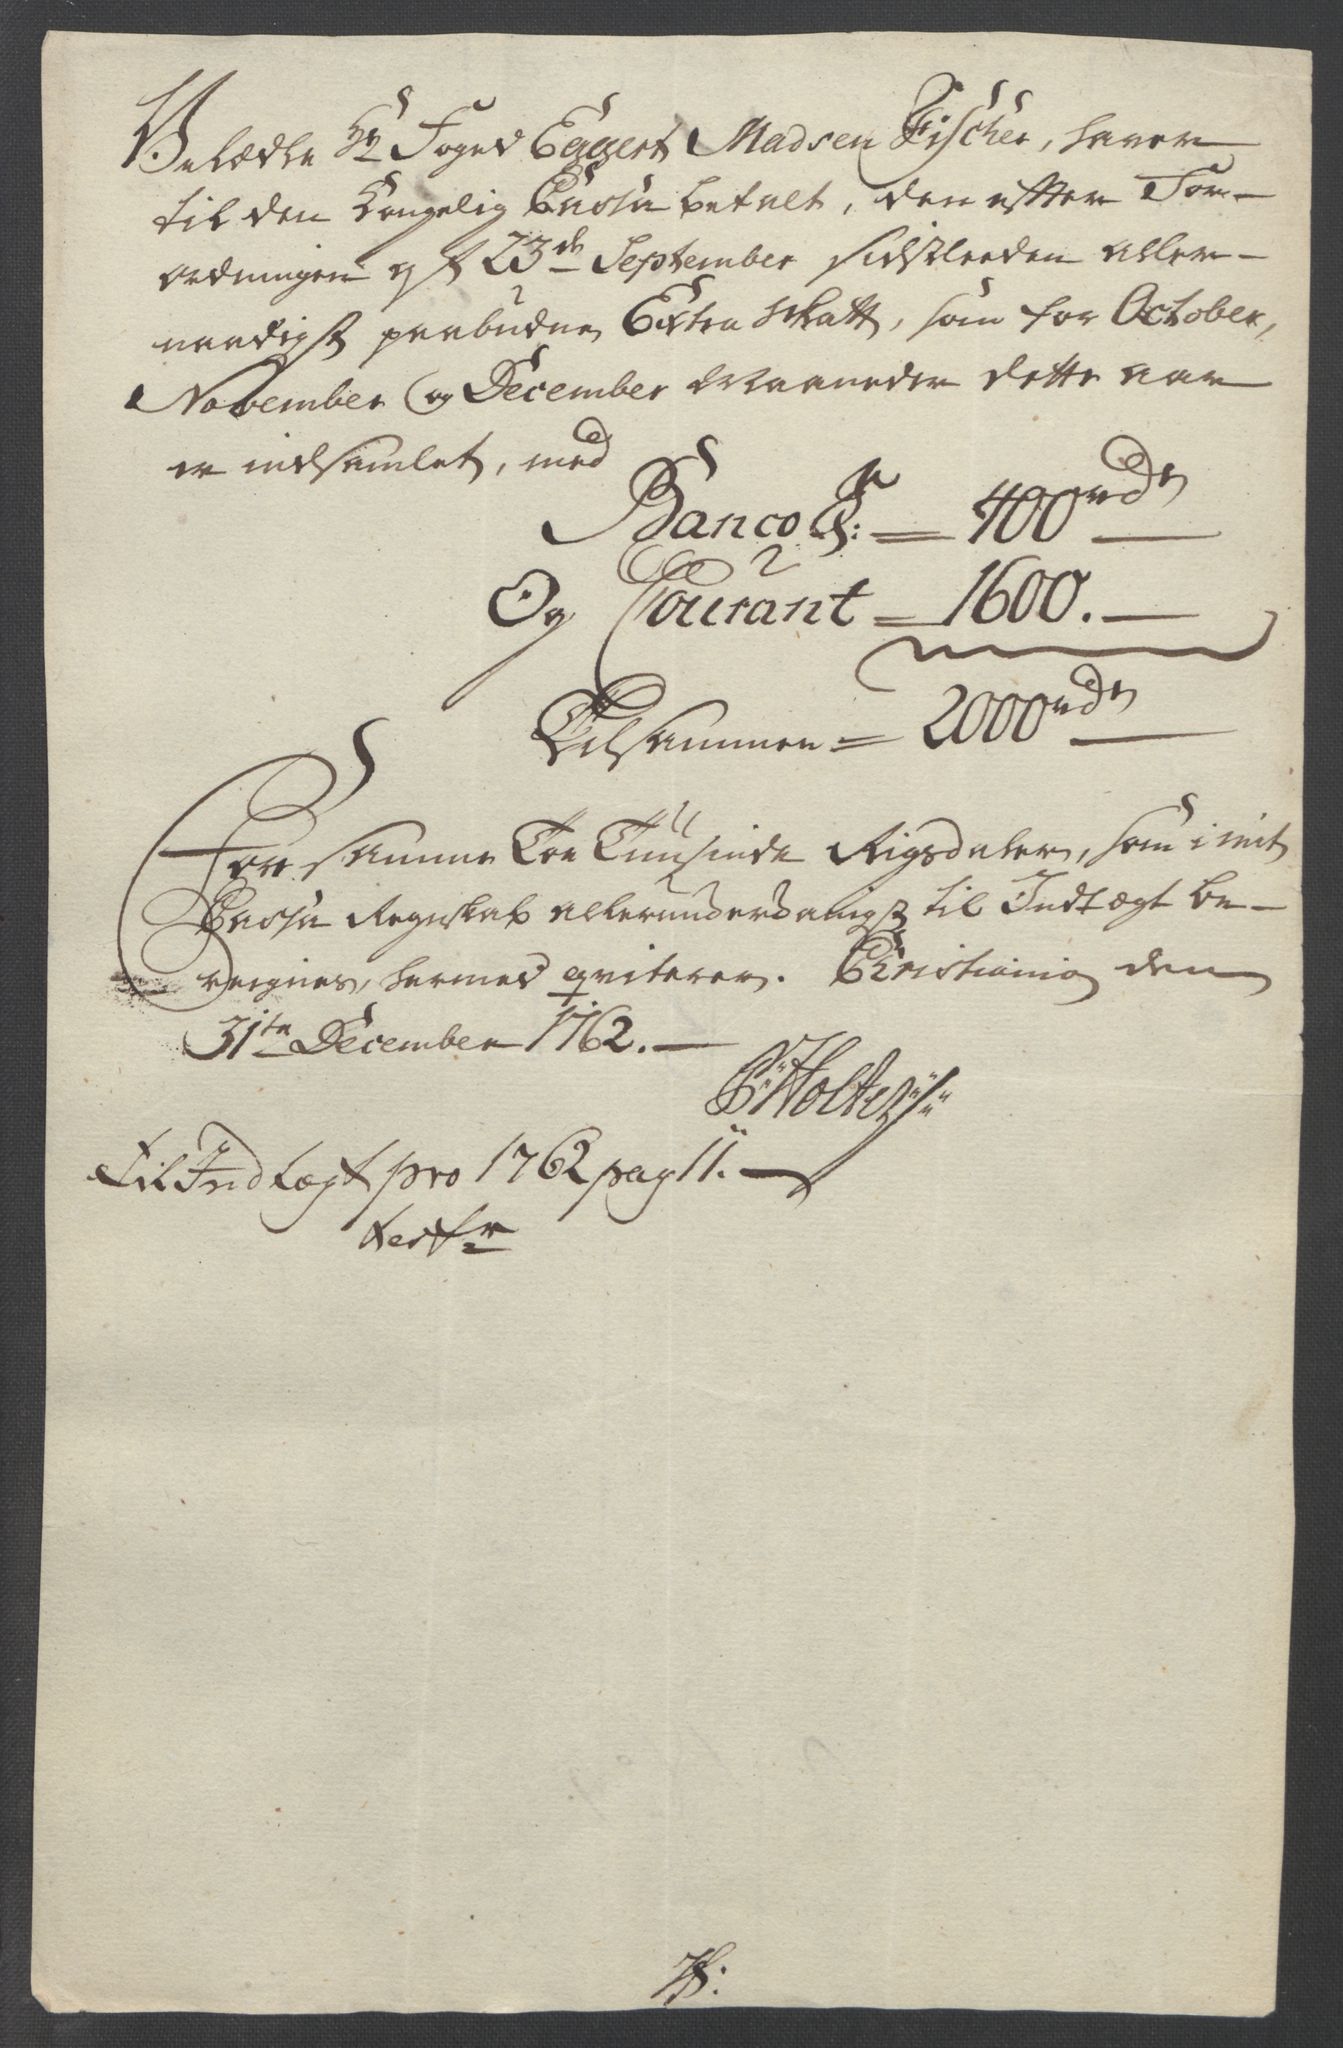 Velædle Hr Foged Eggert Madsen Fischer, haver
til den Kongelig Cassa betalt, den efter For-
ordningen af 23de September sidstleeden aller-
naadigst paabudne Extra Skatt, som for October,
November og December Maaneder dette aar
er indsamlet, med
Banco = 400 rdr
Og Courant = 1600.
Tilsammen = 2000 rdr
For samme Toe Tusinde Rigsdaler, som i mit
Cassa Regnskab allerunderdanigst til Indtægt be-
reignes, hermed qviterer. Christiania den
31te December 1762.
Holter
Til Indtægt pro 1762 pag 11.